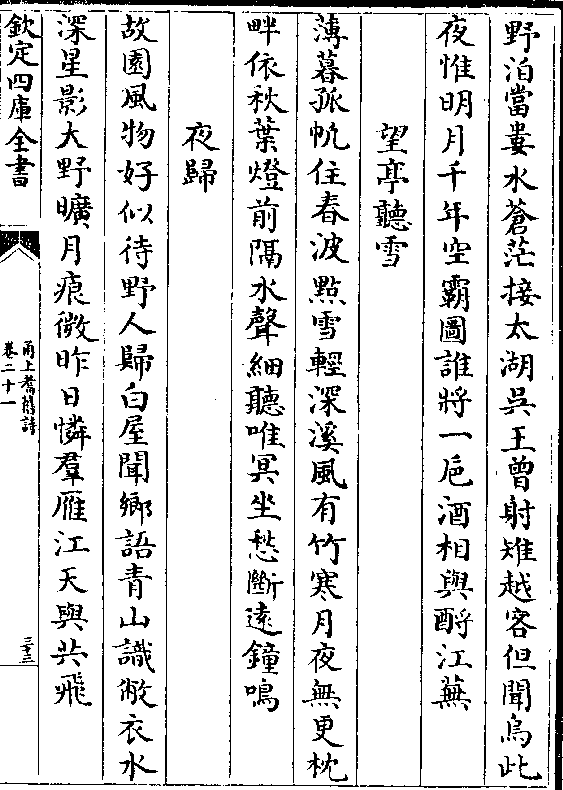 野泊當婁水蒼茫接太湖吳王曾射雉越客但聞烏此
夜惟明月千年空霸圖誰將一巵酒相與酹江蕪
望亭聽雪
薄暮孤帆住春波點雪輕深溪風有竹寒月夜無更枕
畔依秋葉燈前隔水聲細聽唯冥坐愁斷遠鐘鳴
夜歸
故園風物好似待野人歸白屋聞鄉語青山識敝衣水
深星影大野曠月痕微昨日憐羣雁江天與共飛
欽定四庫全書
甬上耆舊詩
卷二十一
三十三